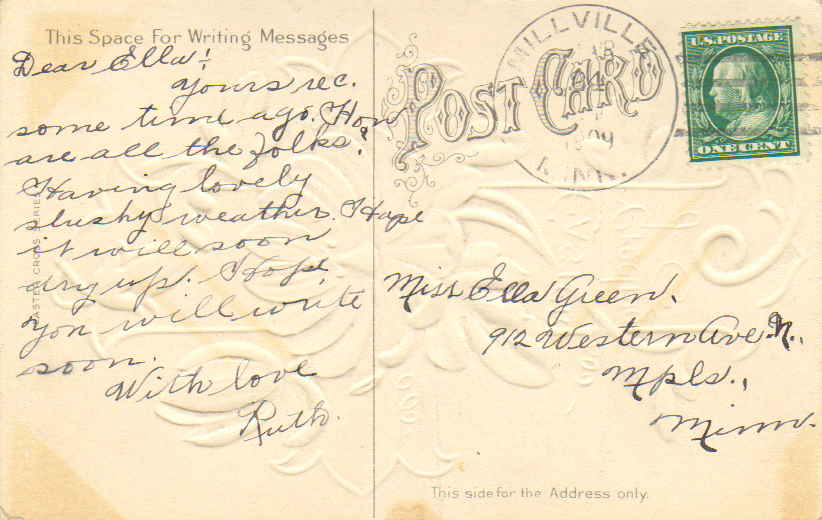 This Space For Writing Messages
Dear Ella:
Yours rec.
some time ago. How
are all the folks?
Having lovely
slushy weather. Hope
it will soon
dry up. Hope
you will write
soon.
With love
Ruth.
EASTER CROSS SERIES
POST CARD
MILLVILLE
1909
MINN.
U.S. POSTAGE
ONE CENT
Miss Ella Green.
912 Western Ave. N.,
Mpls.,
Minn.
This side for the Address only.